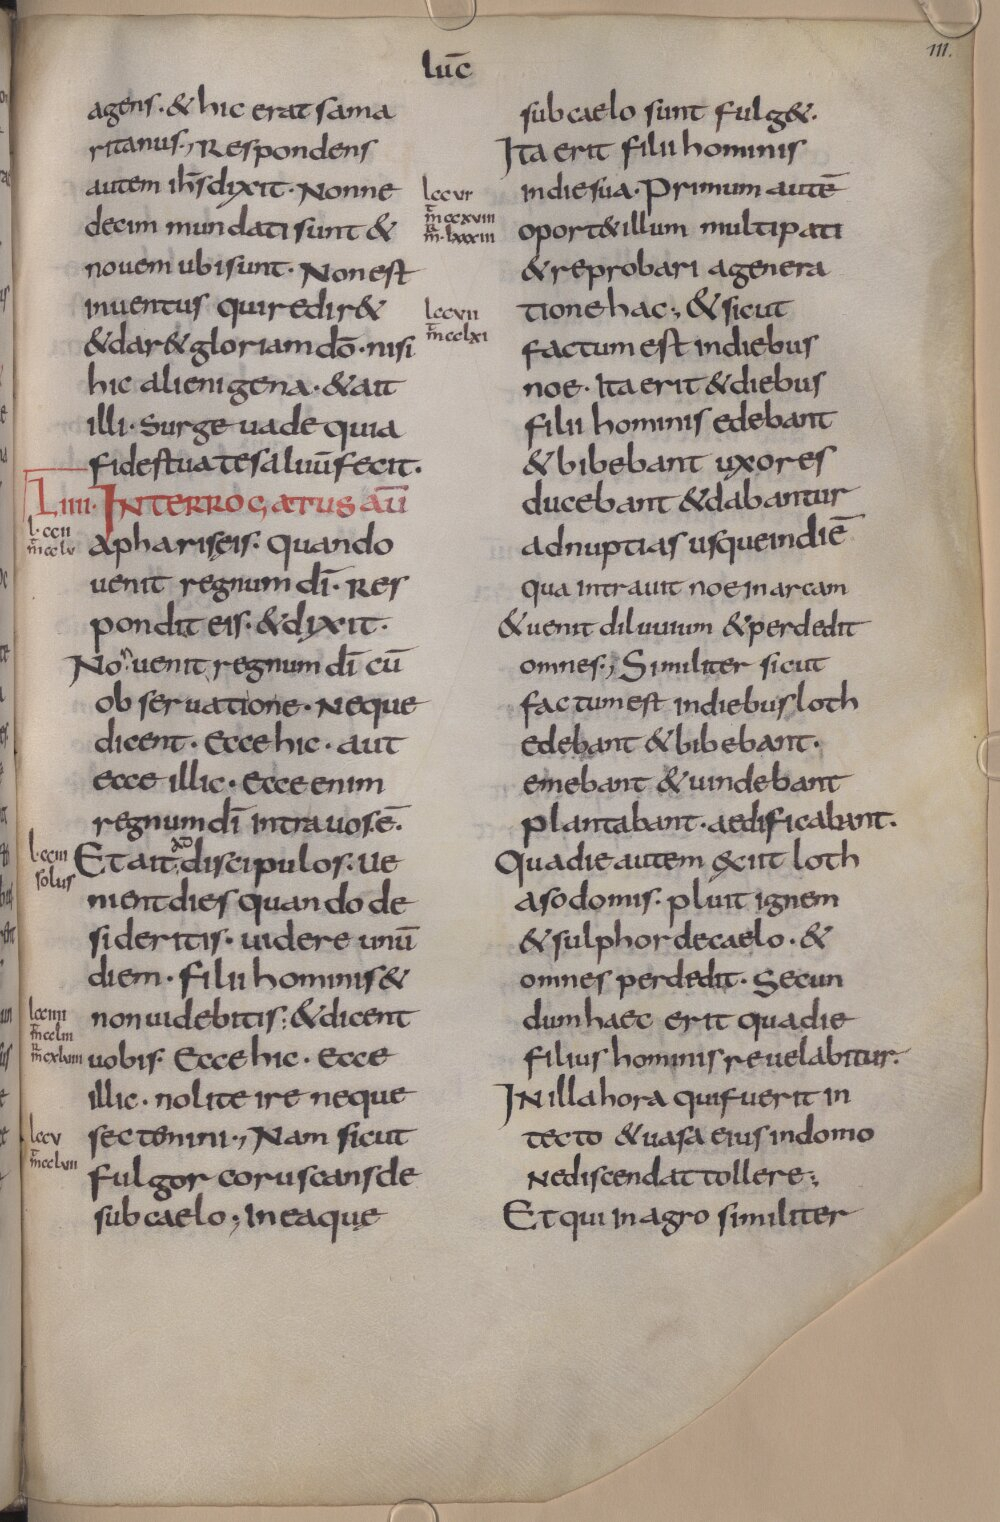 lūc
111.
agens·& hic erat sama
ritanus·, Respondens
autem ih̄s dixit· Nonne
decim mundati sunt &
nouem ubi sunt· Non est
inuentus qui redir&
& dar& gloriam dō· nisi
hic alienigena·& ait
illi· Surge uade quia
fides tua te saluū fecit.
LIIII· INTERROGATUS AŪ
l·ccii
m̄cclv
a phariseis· Quando
uenit regnum dī· Res
pondit eis·& dixit·
Non uenit regnum dī cū
obseruatione· Neque
dicent· Ecce hic· aut
ecce illic· Ecce enim
regnum dī intra uos ē·
l·cciii
solus
Et ait ad discipulos· Ue
nient dies quando de
sideritis· uidere unū
diem· filii hominis &
lcciiii
m̄cclm
m̄cxlviii
non uidebitis;& dicent
uobis· Ecce hic· ecce
illic· nolite ire neque
lccv
m̄cclvii
sectemini·, Nam sicut
fulgor coruscans de
sub caelo, in ea que
sub caelo sunt fulg&·
Ita erit filii hominis
lccvi
m̄ccxviii
m̄·lxxxiii
in die sua· Primum autē
oport& illum multi pati
& reprobari a genera
lccvii
m̄cclxi
tione hac·,& sicut
factum est in diebus
noe· Ita erit & diebus
filii hominis edebant
& bibebant uxores
ducebant & dabantur
ad nuptias usque in diē
qua intrauit noe in arcam
& uenit diluuium & perdedit
omnes·, Similiter sicut
factum est in diebus loth
edebant & bibebant·
emebant & uindebant
plantabant· aedificabant·
Qua die autem exiit loth
a sodomis· pluit ignem
& sulphor de caelo·&
omnes perdedit· Secun
dum haec erit qua die
filius hominis reuelabitur·
In illa hora qui fuerit in
tecto & uasa eius in domo
ne discendat tollere·,
Et qui in agro similiter